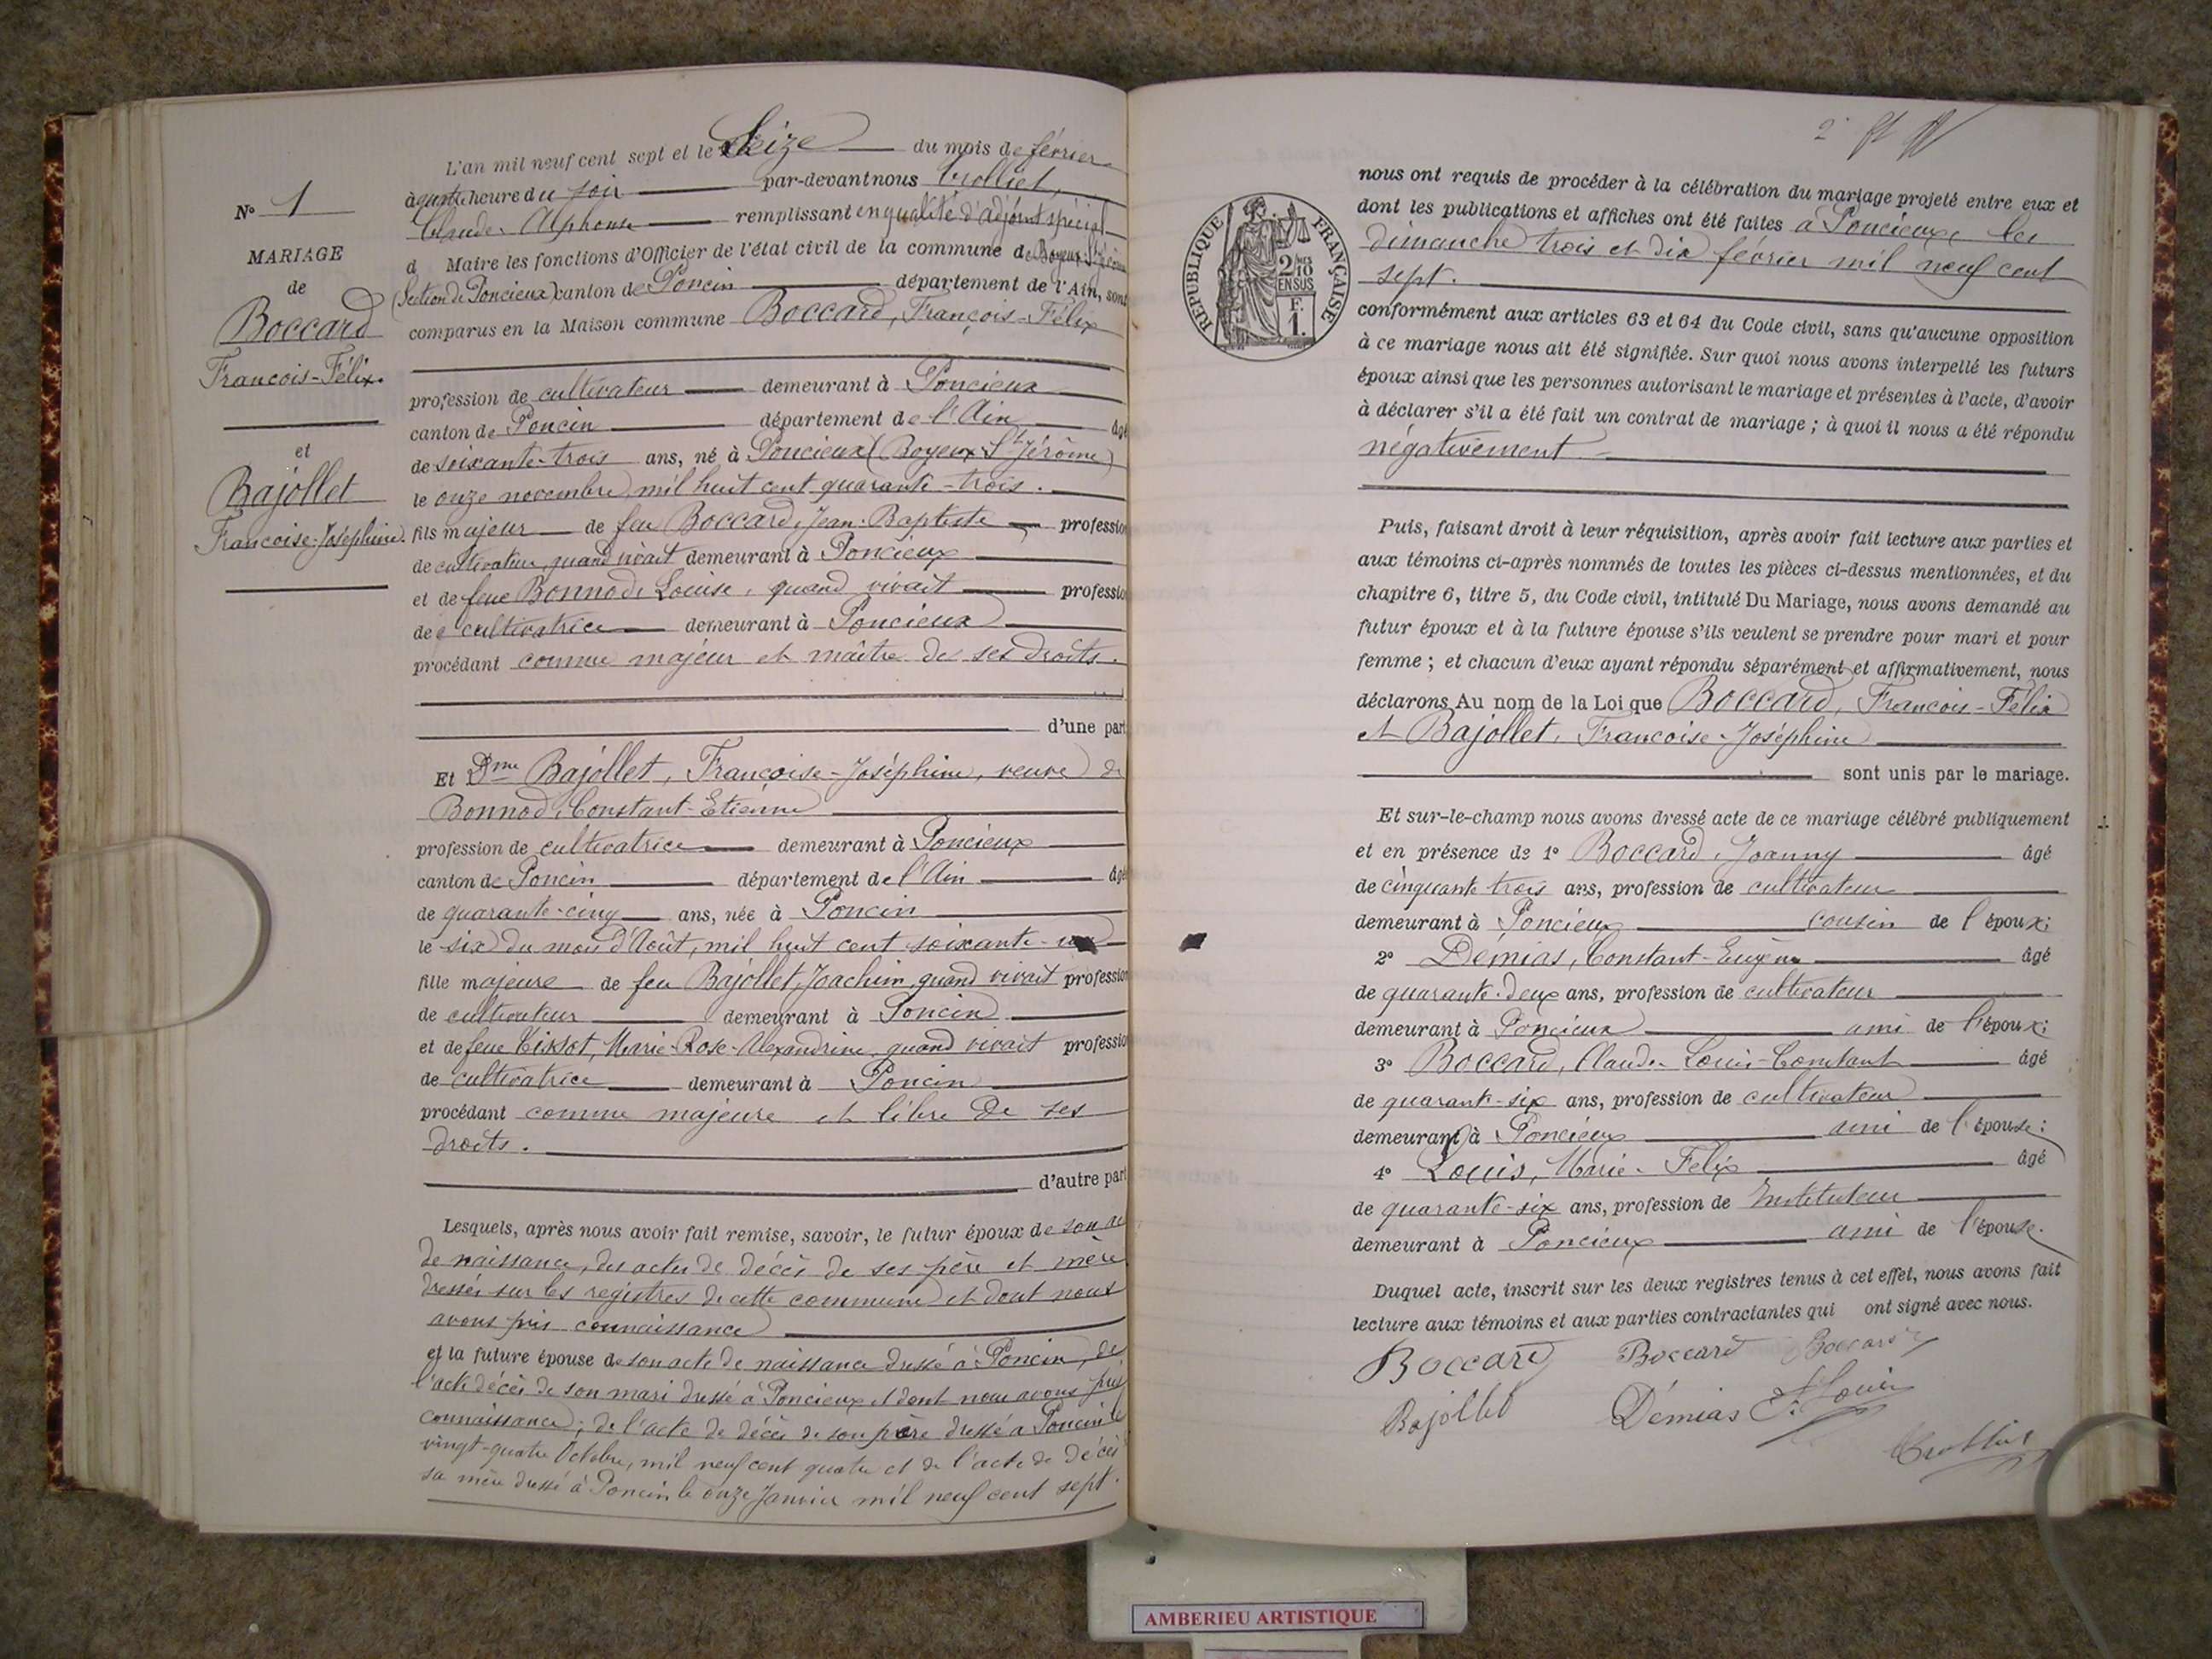 N° 1
MARIAGE
de
Boccard
François-Félix.
et
Bajollet
Françoise-Joséphine.
L'an mil neuf cent sept et le Seize du mois de février
à quatre heure du soir par-devant nous Trolliet,
Claude-Alphonse remplissant en qualité d'adjoint spécial
d Maire les fonctions d'Officier de l'état civil de la commune de Boyeux-St-Jérôme
(Section de Poncieux) canton de Poncin département de l'Ain, sont
comparus en la Maison commune Boccard, François-Félix
profession de cultivateur demeurant à Poncieux
canton de Poncin département de l'Ain âgé
de soixante-trois ans, né à Poncieux (Boyeux-St-Jérôme)
le onze novembre mil huit cent quarante-trois.
fils majeur de feu Boccard, Jean-Baptiste profession
de cultivateur, quand vivait demeurant à Poncieux
et de feue Bonnod, Louise, quand vivait profession
de cultivatrice demeurant à Poncieux
procédant comme majeur et maître de ses droits.
d'une part
Et Dme Bajollet, Françoise-Joséphine, veuve de
Bonnod, Constant-Etienne
profession de cultivatrice demeurant à Poncieux
canton de Poncin département de l'Ain âgé
de quarante-cinq ans, née à Poncin
le six du mois d'Août, mil huit cent soixante-un
fille majeure de feu Bajollet, Joachim, quand vivait profession
de cultivateur demeurant à Poncin
et de feue Tissot, Marie-Rose-Alexandrine, quand vivait profession
de cultivatrice demeurant à Poncin
procédant comme majeure et libre de ses
droits.
d'autre part
Lesquels, après nous avoir fait remise, savoir, le futur époux de son acte
de naissance, des actes de décès de ses père et mère
dressés sur les registres de cette commune et dont nous
avons pris connaissance
et la future épouse de son acte de naissance dressé à Poncin, de
l'acte décès de son mari dressé à Poncieux et dont nous avons pris
connaissance; de l'acte de décès de son père dressé à Poncin le
vingt-quatre Octobre, mil neuf cent quatre et de l'acte de décès
sa mère dressé à Poncin le onze Janvier mil neuf cent sept.
RÉPUBLIQUE FRANÇAISE
2/10
EN SUS
F.
1.
nous ont requis de procéder à la célébration du mariage projeté entre eux et
dont les publications et affiches ont été faites à Poncieux les
dimanche trois et dix février mil neuf cent
sept.
conformément aux articles 63 et 64 du Code civil, sans qu'aucune opposition
à ce mariage nous ait été signifiée. Sur quoi nous avons interpellé les futurs
époux ainsi que les personnes autorisant le mariage et présentes à l'acte, d'avoir
à déclarer s'il a été fait un contrat de mariage ; à quoi il nous a été répondu
négativement
Puis, faisant droit à leur réquisition, après avoir fait lecture aux parties et
aux témoins ci-après nommés de toutes les pièces ci-dessus mentionnées, et du
chapitre 6, titre 5, du Code civil, intitulé Du Mariage, nous avons demandé au
futur époux et à la future épouse s'ils veulent se prendre pour mari et pour
femme ; et chacun d'eux ayant répondu séparément et affirmativement, nous
déclarons Au nom de la Loi que Boccard, François-Félix
et Bajollet, Françoise-Joséphine
sont unis par le mariage.
Et sur-le-champ nous avons dressé acte de ce mariage célébré publiquement
et en présence de 1° Boccard, Joanny âgé
de cinquante trois ans, profession de cultivateur
demeurant à Poncieux cousin de l'époux;
2° Demias, Constant-Eugène âgé
de quarante-deux ans, profession de cultivateur
demeurant à Poncieux ami de l'époux;
3° Boccard, Claude-Louis-Constant âgé
de quarante-six ans, profession de cultivateur
demeurant à Poncieux ami de l'épouse;
4° Louis, Marie-Felix âgé
de quarante-six ans, profession de Instituteur
demeurant à Poncieux ami de l'épouse.
Duquel acte, inscrit sur les deux registres tenus à cet effet, nous avons fait
lecture aux témoins et aux parties contractantes qui ont signé avec nous.
Boccard Boccard Boccard
Bajollet Démias F. Louis
Trolliet
AMBERIEU ARTISTIQUE